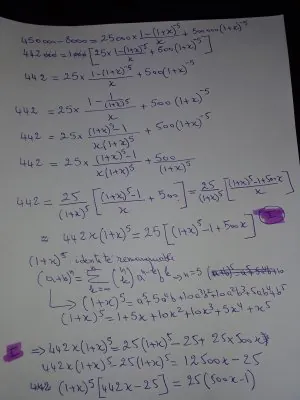 450000 - 8000 = 25000 × (1-(1+x)^-5)/x + 500000(1+x)^-5
442 = [25 × (1-(1+x)^-5)/x + 500(1+x)^-5]
442 = 25 × (1-(1+x)^-5)/x + 500(1+x)^-5
442 = 25 × (1 - 1/(1+x)^5)/x + 500(1+x)^-5
442 = 25 × ((1+x)^5-1)/(x(1+x)^5) + 500(1+x)^-5
442 = 25 × ((1+x)^5-1)/(x(1+x)^5) + 500/(1+x)^5
442 = 25/(1+x)^5 [((1+x)^5-1)/x + 500] = 25/(1+x)^5 [((1+x)^5-1+500x)/x]
442x(1+x)^5 = 25[(1+x)^5-1+500x]
(1+x)^5 identité remarquable
(a+b)^n = Σ k=0 n (n k) a^n-k b^k → n=5
(1+x)^5 = a^5+5a^4b+10a^3b^2+10a^2b^3+5ab^4+b^5
(1+x)^5 = 1+5x+10x^2+10x^3+5x^4+x^5
⇒ 442x(1+x)^5 = 25(1+x)^5 - 25 + 25×500x
442x(1+x)^5 - 25(1+x)^5 = 12500x - 25
(1+x)^5 [442x-25] = 25(500x-1)